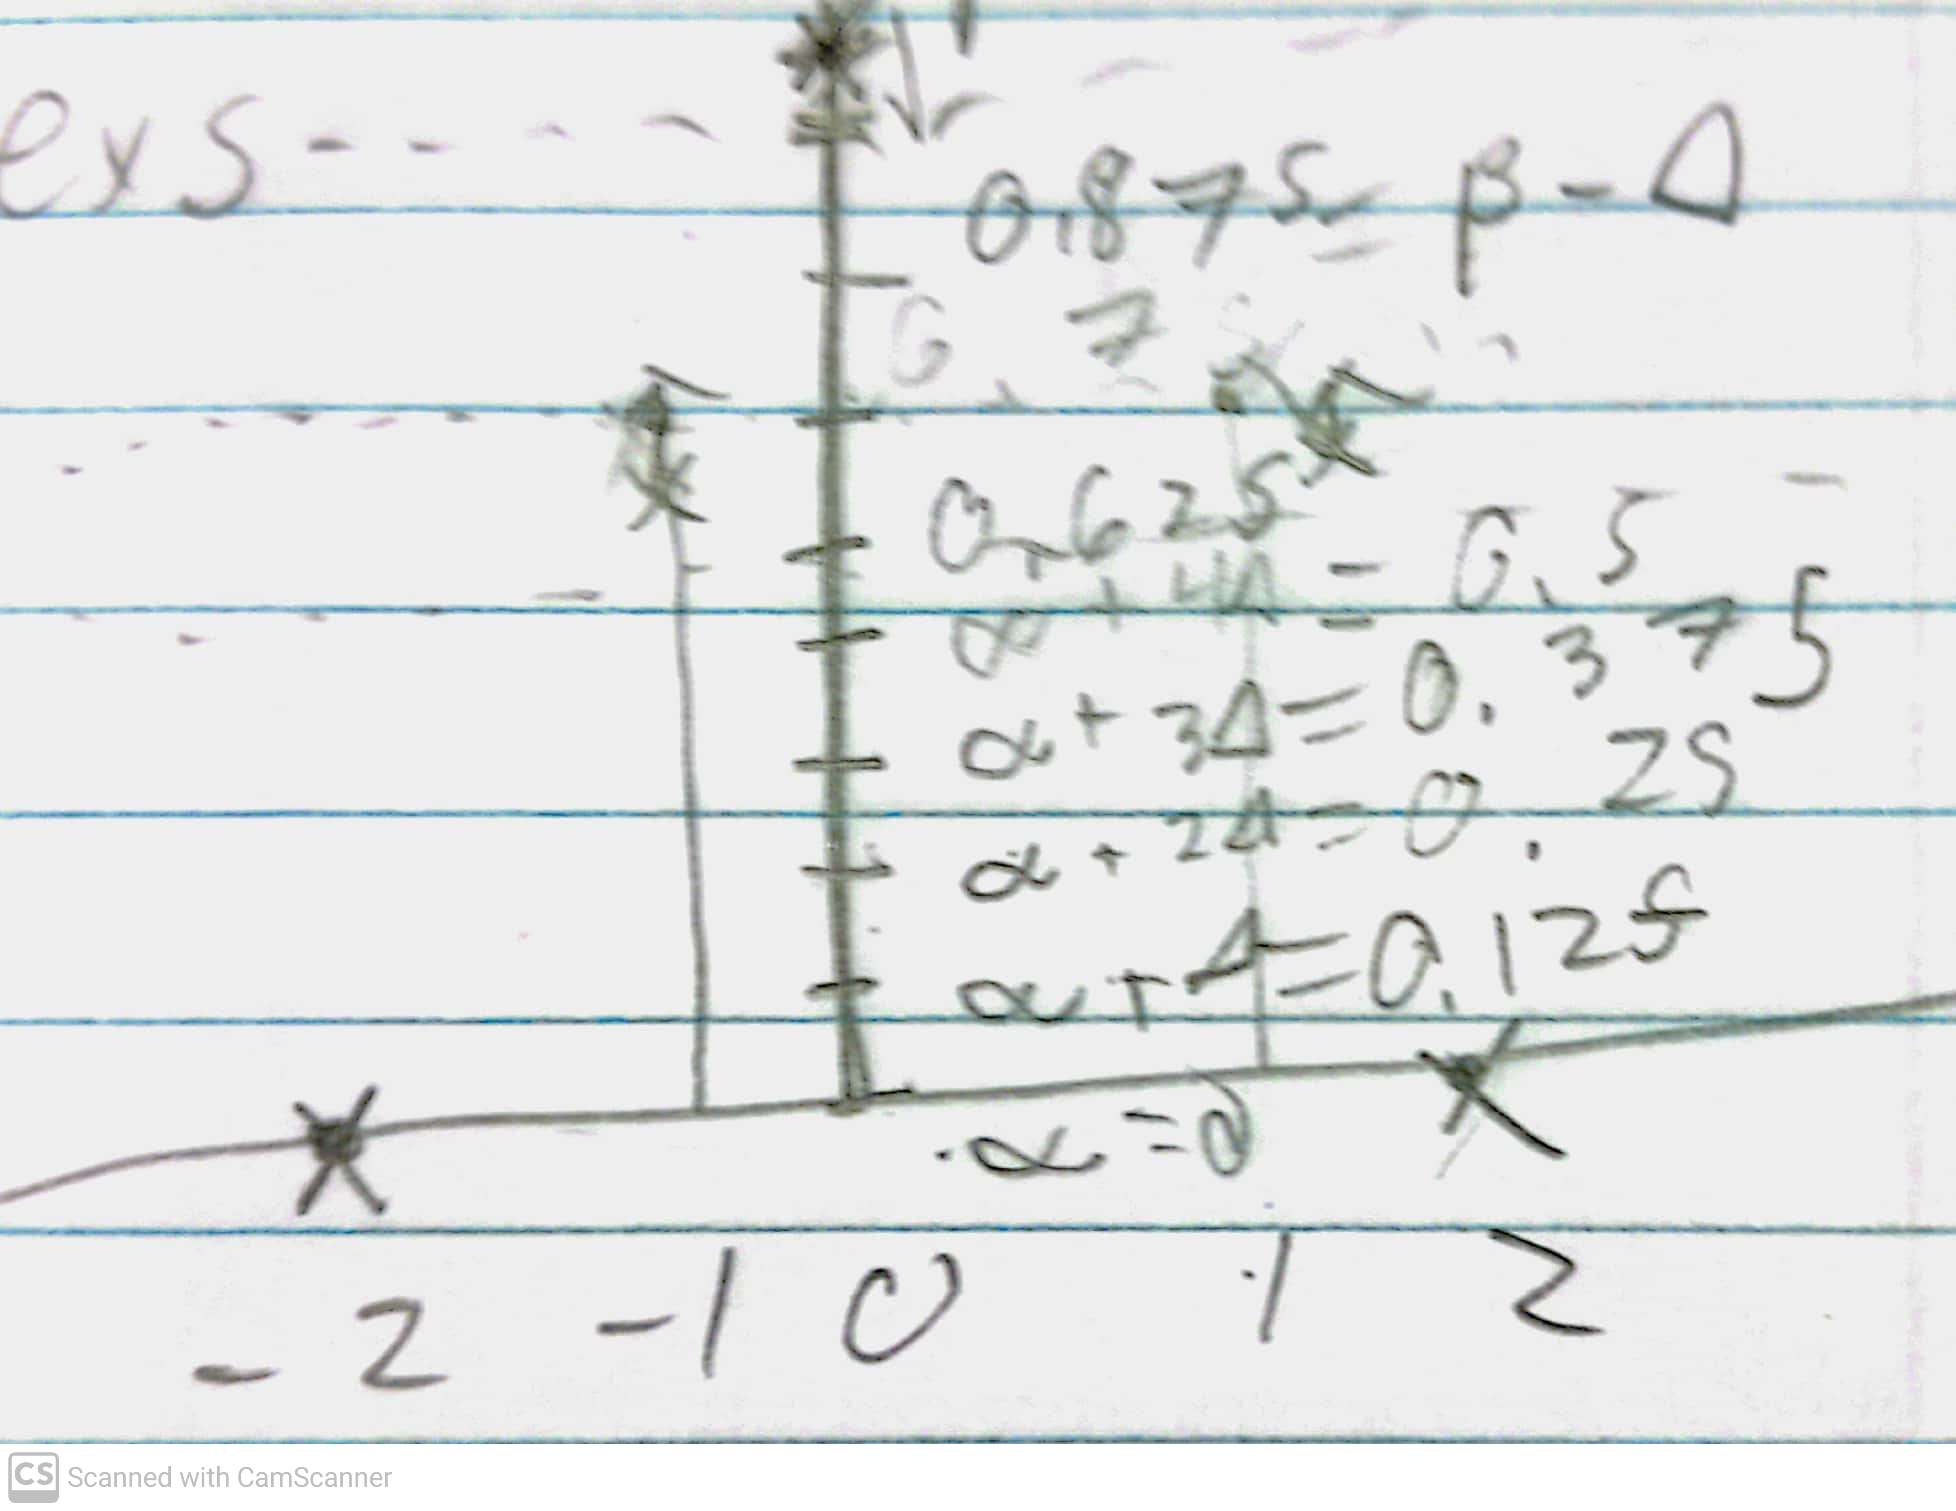 exs
0.875 = β - Δ
0.7
0.625
α + 4Δ = 0.5
α + 3Δ = 0.375
α + 2Δ = 0.25
α + Δ = 0.125
α = 0
-2 -1 0 1 2
CS Scanned with CamScanner